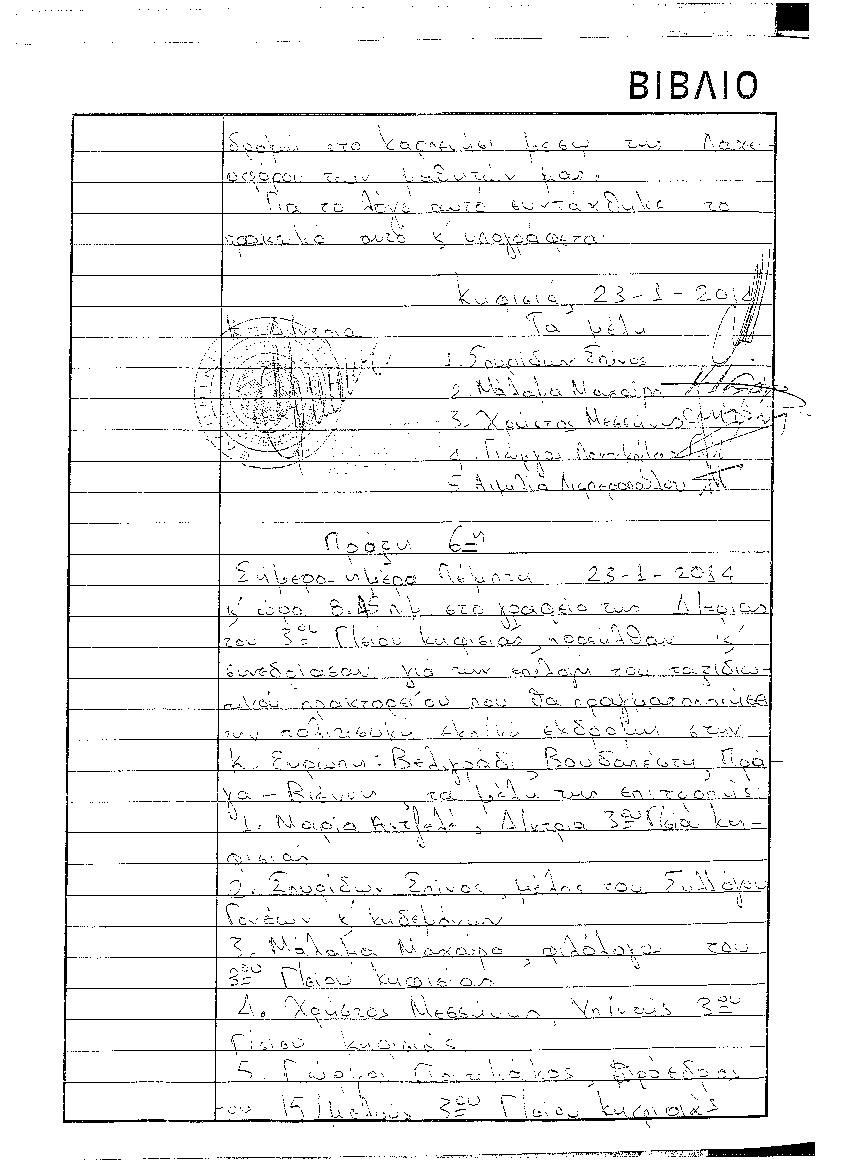 ΒΙΒΛΙΟ
δρομή στο Καρπενήσι μέσω της Λαχειο
φόρου των μαθητών μας.
Για το λόγο αυτό συντάχθηκε το
πρακτικό αυτό κ' υπογράφεται
Κηφισιά, 23-1-2014
Η Δ/ντρια Τα μέλη
1. Σπυρίδων Σπίνος
2. Μάλαμα Μακαίρη
3. Χρήστος Μεσσήνης
4. Γιώργος
5 Αιμιλία
Πράξη 6η
Σήμερα ημέρα Πέμπτη 23-1-2014
κ' ώρα 8.45 πμ στο γραφείο της Δ/ντριας
του 3ου Γ/σίου Κηφισιάς, προσήλθαν κ'
συνεδρίασαν για την επιλογή του ταξιδιω-
τικού πρακτορείου που θα πραγματοποιήσει
την πολιτιστική εκδρομή στην
Κ. Ευρώπη: Βελιγράδι, Βουδαπέστη, Πρά
γα - Βιέννη, τα μέλη της επιτροπής:
1. Μαρία, Δ/ντρια 3ου Γ/σίου Κη-
φισιάς
2. Σπυρίδων Σπίνος, μέλος του Συλλόγου
Γονέων κ' κηδεμόνων
3. Μάλαμα Μακαίρη, φιλόλογος του
3ου Γ/σίου Κηφισιάς
4. Χρήστος Μεσσήνης, 3ου
Γ/σίου Κηφισιάς
5. Γιώργος, Πρόεδρος
του 15/μελούς 3ου Γ/σίου Κηφισιάς